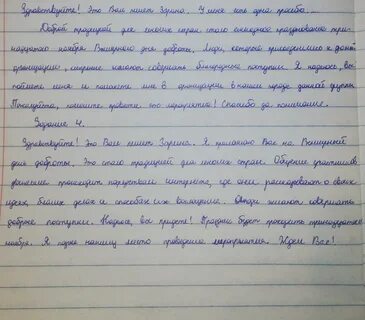 Здравствуйте! Это Вам пишет Зорина. У меня есть одна просьба.
Доброй традицией для многих стран стало ежегодное празднование три-
надцатого ноября Всемирного дня доброты. Люди, которые присоединились к данной
организации, искренне желают совершать благородные поступки. Я надеюсь, вы
поймёте меня и поможете мне в организации в нашем городе данной группы.
Пожалуйста, помогите провести это мероприятие! Спасибо за понимание.
Задание 4.
Здравствуйте! Это Вам пишет Зорина. Я приглашаю Вас на Всемирный
день доброты. Это стало традицией для многих стран. Общение участников
движения происходит посредством интернета, где они рассказывают о своих
идеях, благих делах и способах их воплощения. Люди желают совершать
добрые поступки. Надеюсь, вы придёте! Праздник будет проходить тринадцатого
ноября. Я парке нашему место проведения мероприятия. Ждём Вас!